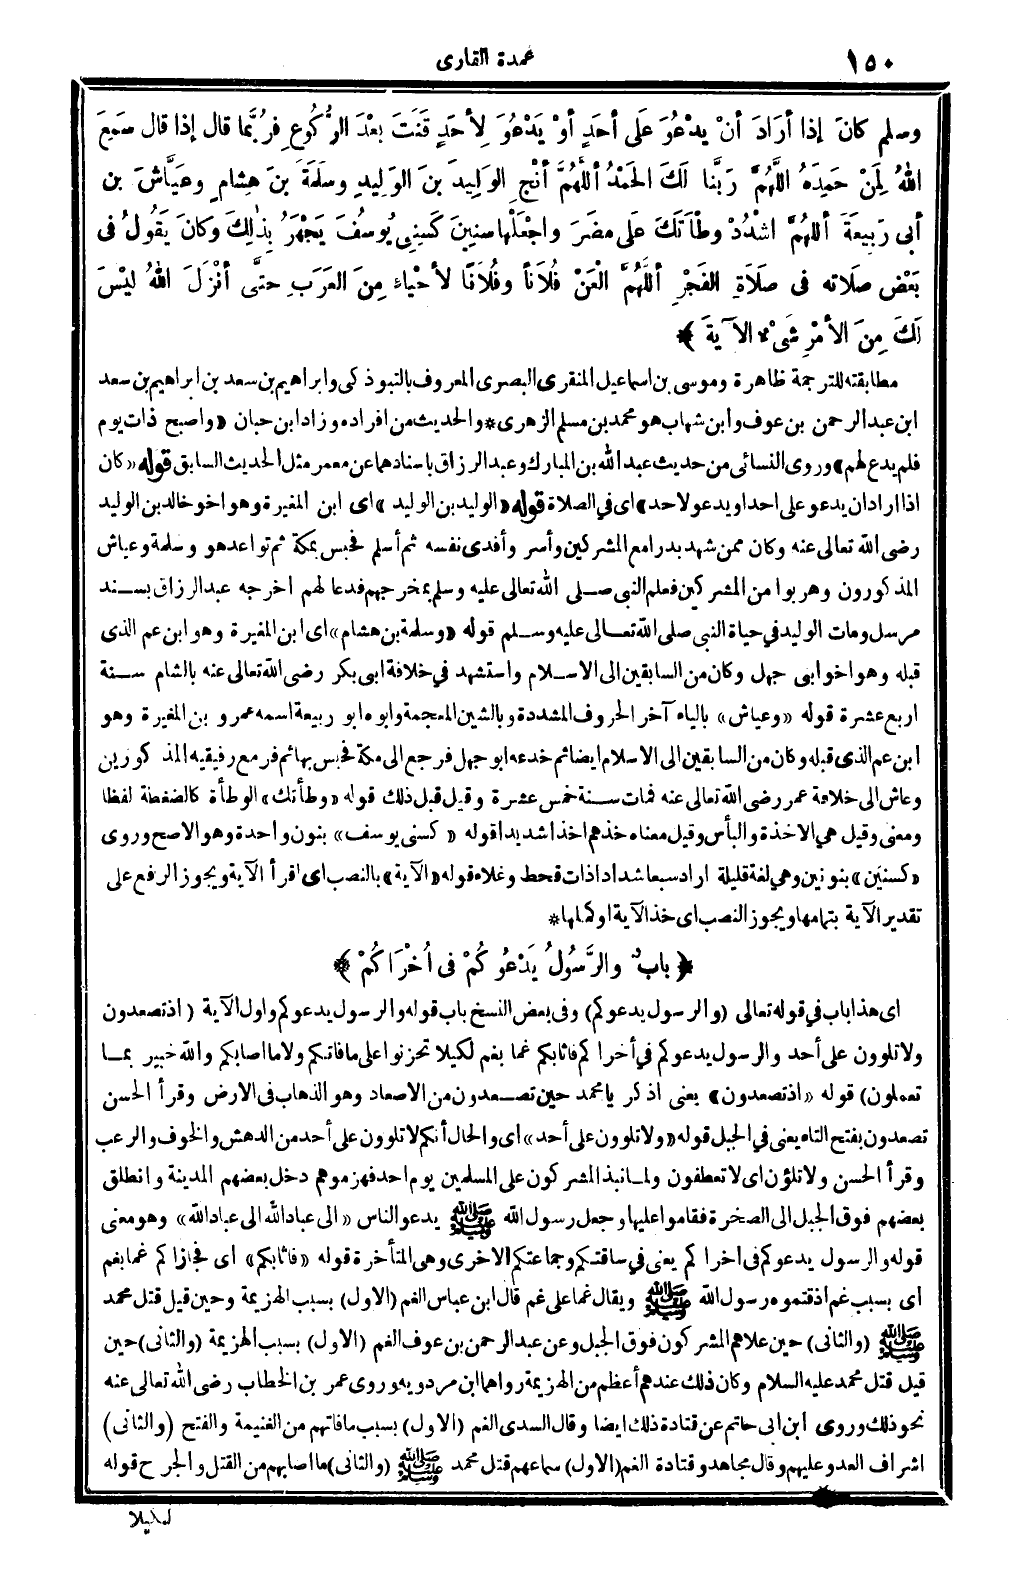 ١٥٠ عمدة القارى
وسلم كانَ إذا أرَادَ أنْ يدْعُوَ عَلَى أحَدٍ أوْ يَدْعُوَ لِأحَدٍ قَنَتَ بعْدَ الرُّكُوعِ فرُبَّما قال إذا قال سَمِعَ
اللهُ لِمَنْ حَمِدَهُ اللَّهُمَّ رَبَّنا لكَ الحَمْدُ أللَّهُمَّ أنْجِ الوَلِيدَ بنَ الوَلِيدِ وسلَمَةَ بنَ هِشامٍ وعَيَّاشَ بن
أبى رَبِيعَةَ أللهُمَّ اشْدُدْ وطْأتَكَ عَلى مضَرَ واجْعَلْها سنِينَ كَسِنِى يُوسُفَ يَجْهَرُ بِذٰلِكَ وكانَ يَقُولُ فى
بَعْضِ صلَاتِه فى صلَاةِ الفَجْرِ أللَّهُمَّ الْعَنْ فُلَاناً وفُلَانًا لأحْياءٍ مِنَ العَرَبِ حتَّى أنْزَلَ اللهُ ليْسَ
لَكَ مِنَ الأمْرِ شَىْءٌ الآيةَ ﴾
مطابقته للترجمة ظاهرة وموسى بن اسماعيل المنقرى البصرى المعروف بالتبوذكى وابراهيم بن سعد بن ابراهيم بن سعد
ابن عبد الرحمن بن عوف وابن شهاب هو محمد بن مسلم الزهرى * والحديث من افراده وزاد ابن حبان «واصبح ذات يوم
فلم يدع لهم» وروى النسائى من حديث عبد الله بن المبارك وعبد الرزاق باسنادهما عن معمر مثل الحديث السابق قوله «كان
اذا اراد ان يدعو على احد او يدعو لاحد» اى فى الصلاة قوله «الوليد بن الوليد» اى ابن المغيرة وهو اخو خالد بن الوليد
رضى الله تعالى عنه وكان ممن شهد بدرا مع المشركين وأسر وأفدى نفسه ثم أسلم فحبس بمكة ثم تواعد هو وسلمة وعياش
المذكورون وهربوا من المشركين فعلم النبى صلى الله تعالى عليه وسلم بمخرجهم فدعا لهم اخرجه عبد الرزاق بسند
مرسل ومات الوليد فى حياة النبى صلى الله تعالى عليه وسلم قوله «وسلمة بن هشام» اى ابن المغيرة وهو ابن عم الذى
قبله وهو اخو ابى جهل وكان من السابقين الى الاسلام واستشهد فى خلافة ابى بكر رضى الله تعالى عنه بالشام سنة
اربع عشرة قوله «وعياش» بالياء آخر الحروف المشددة وبالشين المعجمة وابوه ابو ربيعة اسمه عمرو بن المغيرة وهو
ابن عم الذى قبله وكان من السابقين الى الاسلام ايضا ثم خدعه ابو جهل فرجع الى مكة فحبس بها ثم فر مع رفيقيه المذكورين
وعاش الى خلافة عمر رضى الله تعالى عنه فمات سنة خمس عشرة وقيل قبل ذلك قوله «وطأتك» الوطأة كالضغطة لفظا
ومعنى وقيل هى الاخذة والبأس وقيل معناه خذهم اخذا شديدا قوله «كسنى يوسف» بنون واحدة وهو الاصح وروى
«كسنين» بنونين وهى لغة قليلة اراد سبعا شدادا ذات قحط وغلاء قوله «الآية» بالنصب اى اقرأ الآية ويجوز الرفع على
تقدير الآية بتمامها ويجوز النصب اى خذ الآية او كملها *
﴿ بابٌ والرَّسُولُ يَدْعُوكُمْ فى أُخْرَاكُمْ ﴾
اى هذا باب فى قوله تعالى (والرسول يدعوكم) وفى بعض النسخ باب قوله والرسول يدعوكم واول الآية (اذ تصعدون
ولا تلوون على أحد والرسول يدعوكم فى أخراكم فاثابكم غما بغم لكيلا تحزنوا على ما فاتكم ولا ما اصابكم والله خبير بمـا
تعملون) قوله «اذ تصعدون» يعنى اذكر يا محمد حين تصعدون من الاصعاد وهو الذهاب فى الارض وقرأ الحسن
تصعدون بفتح التاء يعنى فى الجبل قوله «ولا تلوون على أحد» اى والحال أنكم لا تلوون على أحد من الدهش والخوف والرعب
وقرأ الحسن ولا تلؤن اى لا تعطفون ولما نبذ المشركون على المسلمين يوم احد فهزموهم دخل بعضهم المدينة وانطلق
بعضهم فوق الجبل الى الصخرة فقاموا عليها وجعل رسول الله ﷺ يدعو الناس «الى عباد الله الى عباد الله» وهو معنى
قوله والرسول يدعوكم فى اخراكم يعنى فى ساقتكم وجماعتكم الاخرى وهى المتأخرة قوله «فاثابكم» اى فجازاكم غما بغم
اى بسبب غم اذقتموه رسول الله ﷺ ويقال غما على غم قال ابن عباس الغم (الاول) بسبب الهزيمة وحين قيل قتل محمد
ﷺ (والثانى) حين علاهم المشركون فوق الجبل وعن عبد الرحمن بن عوف الغم (الاول) بسبب الهزيمة (والثانى) حين
قيل قتل محمد عليه السلام وكان ذلك عندهم أعظم من الهزيمة رواهما ابن مردويه وروى عمر بن الخطاب رضى الله تعالى عنه
نحو ذلك وروى ابن ابى حاتم عن قتادة ذلك ايضا وقال السدى الغم (الاول) بسبب ما فاتهم من الغنيمة والفتح (والثانى)
اشراف العدو عليهم وقال مجاهد وقتادة الغم (الاول) سماعهم قتل محمد ﷺ (والثانى) ما اصابهم من القتل والجرح قوله
لكيلا